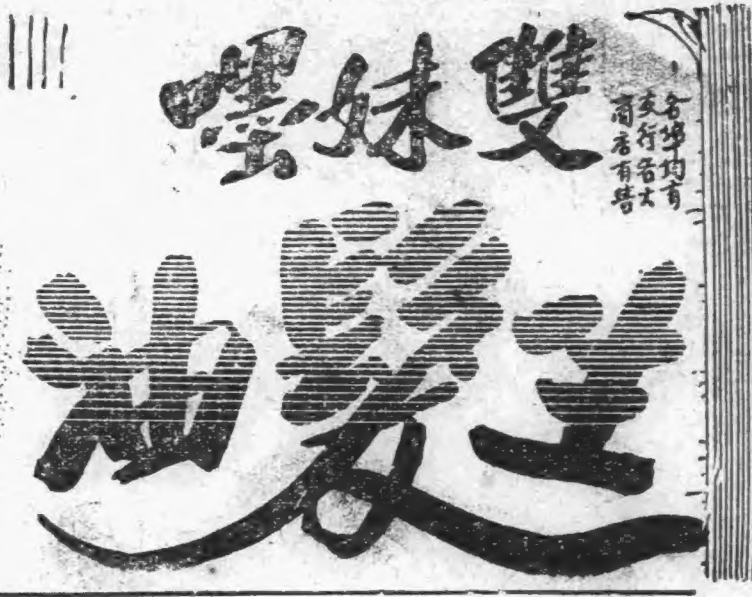 雙妹嚜
各埠均有
支行各大
商店有售
生髮油